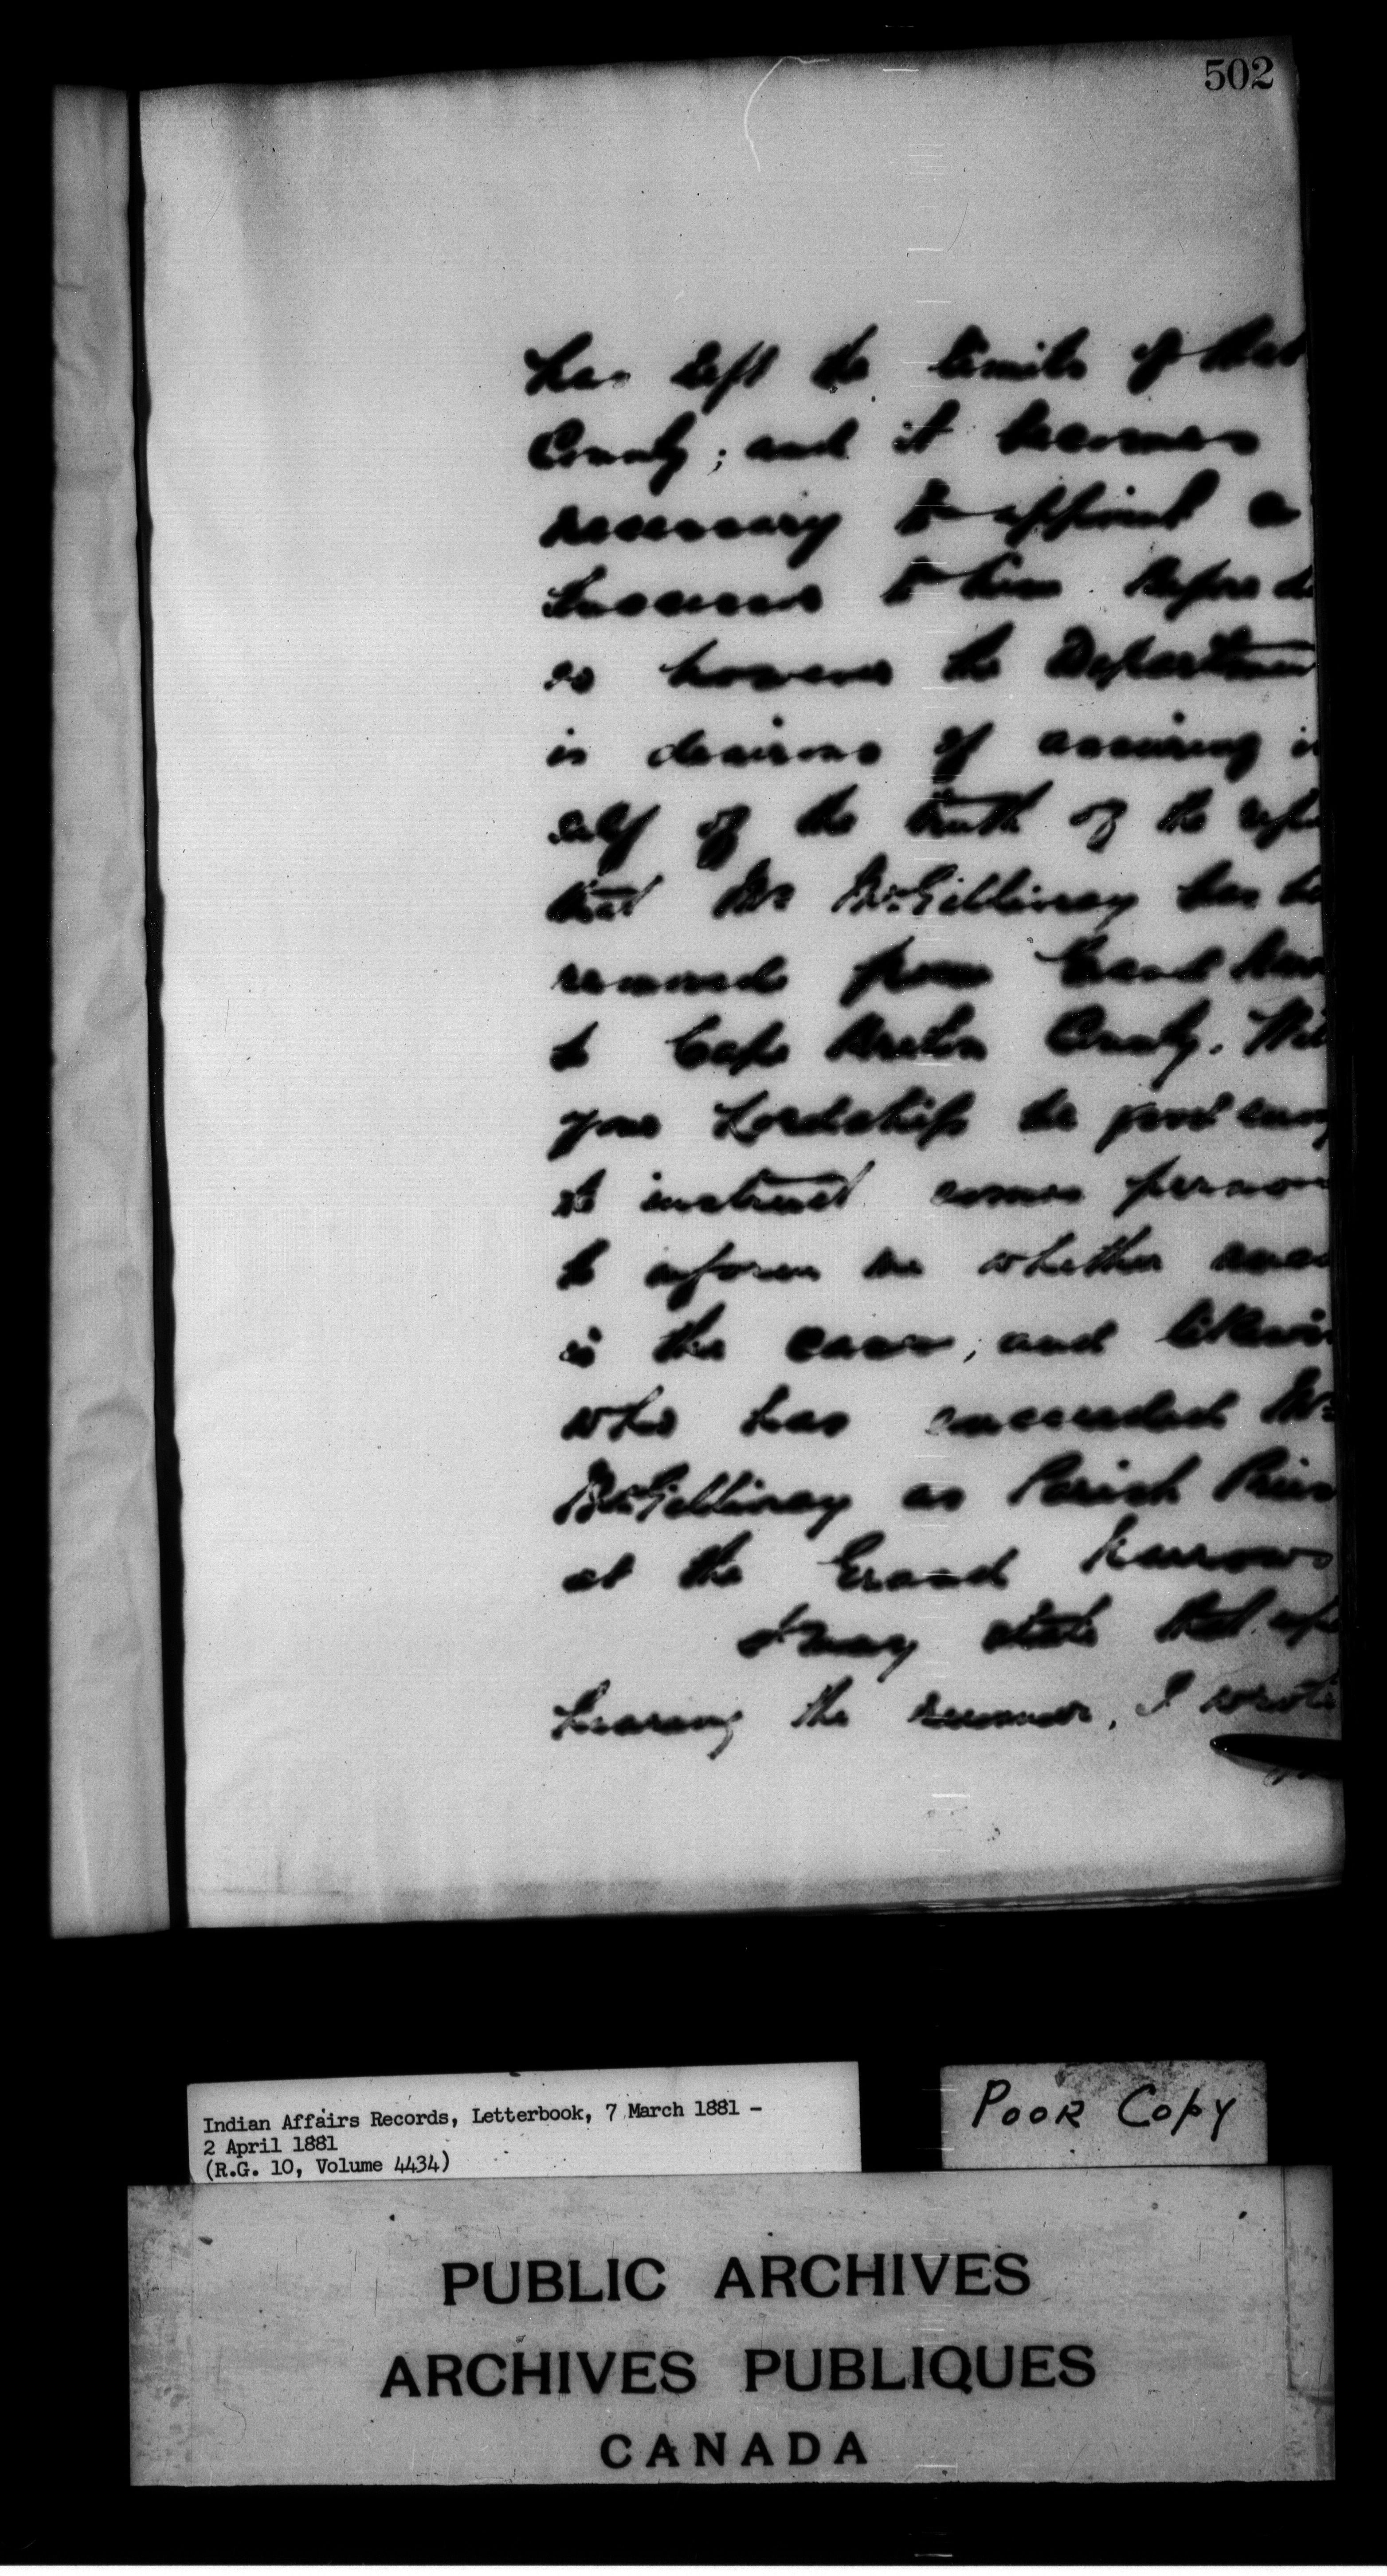 502
has left the limits of that
County; and it becomes
necessary to appoint a
successor to him. Before do
so however the Department
is desirous of assuring i
self of the truth of the repo
that Mr McGillivray has be
removed from Grand Narr
to Cape Breton County. Will
your Lordship be good enoug
to instruct some person
to inform me whether such
is the case, and likewis
who has succeeded Mr
McGillivray as Parish Pries
at the Grand Narrows
I may state that upo
hearing the rumour, I wrote
Indian Affairs Records, Letterbook, 7 March 1881 -
2 April 1881
(R.G. 10, Volume 4434)
POOR COPY
PUBLIC ARCHIVES
ARCHIVES PUBLIQUES
CANADA